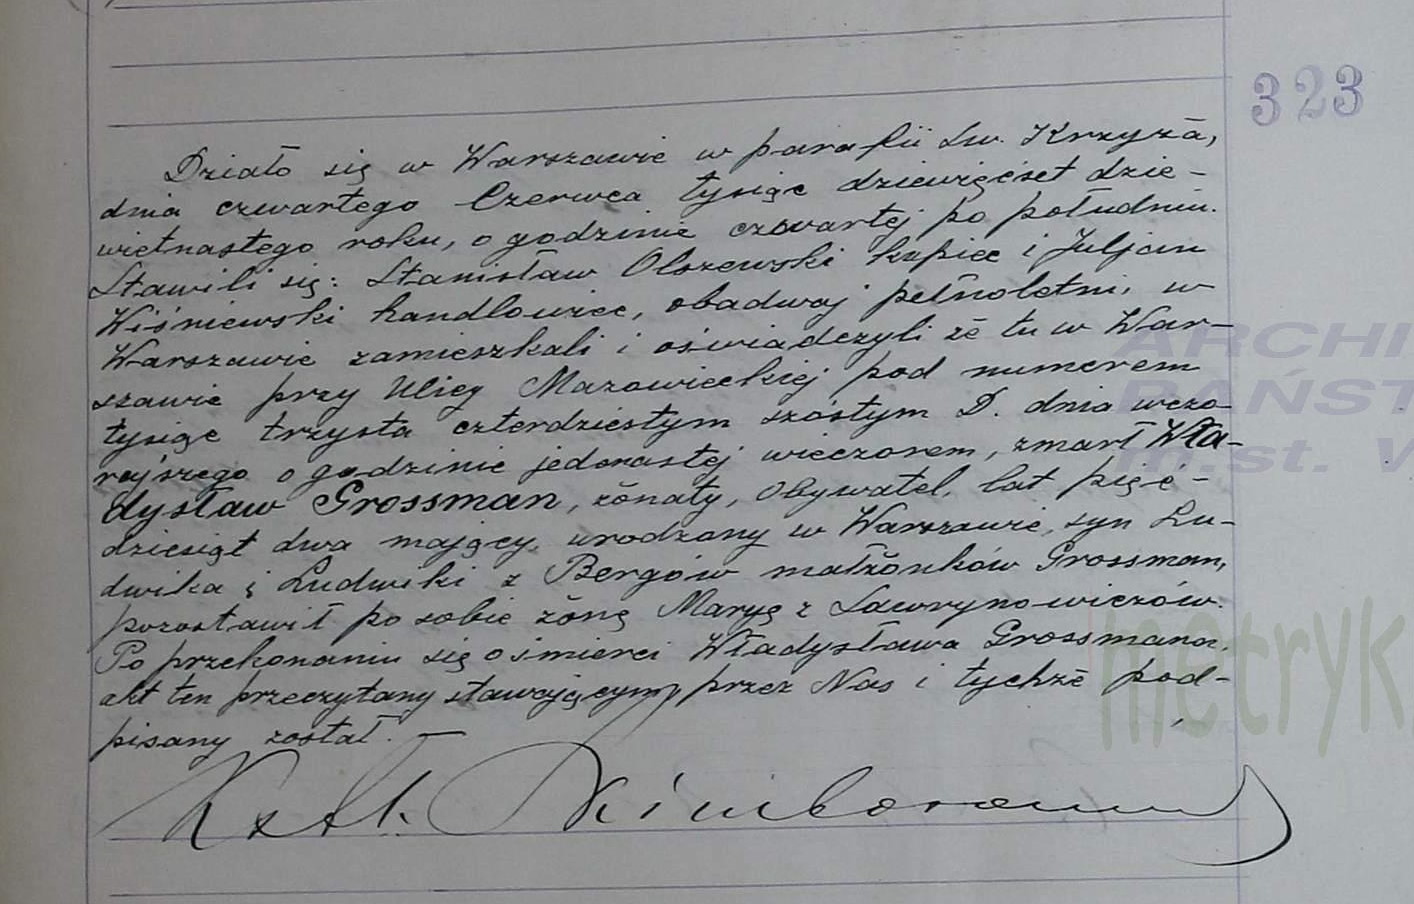 323
Działo się w Warszawie w parafii Św. Krzyża,
dnia czwartego Czerwca tysiąc dziewięćset dzie-
więtnastego roku, o godzinie czwartej po południu.
Stawili się: Stanisław Olszewski kupiec i Juljan
Wiśniewski handlowiec, obadwaj pełnoletni, w
Warszawie zamieszkali i oświadczyli że tu w War-
szawie przy Ulicy Mazowieckiej pod numerem
tysiąc trzysta czterdziestym szóstym D. dnia wczo-
rajszego o godzinie jedenastej wieczorem, zmarł Wła-
dysław Grossman, żonaty, Obywatel, lat pięć-
dziesiąt dwa mający, urodzony w Warszawie, syn Lu-
dwika i Ludwiki z Bergów małżonków Grossman,
pozostawił po sobie żonę Maryę z Ławrynowiczów.
Po przekonaniu się o śmierci Władysława Grossmana,
akt ten przeczytany stawającym, przez Nas i tychże pod-
pisany został. —
ARCHI
PAŃST
m.st. W
metryk